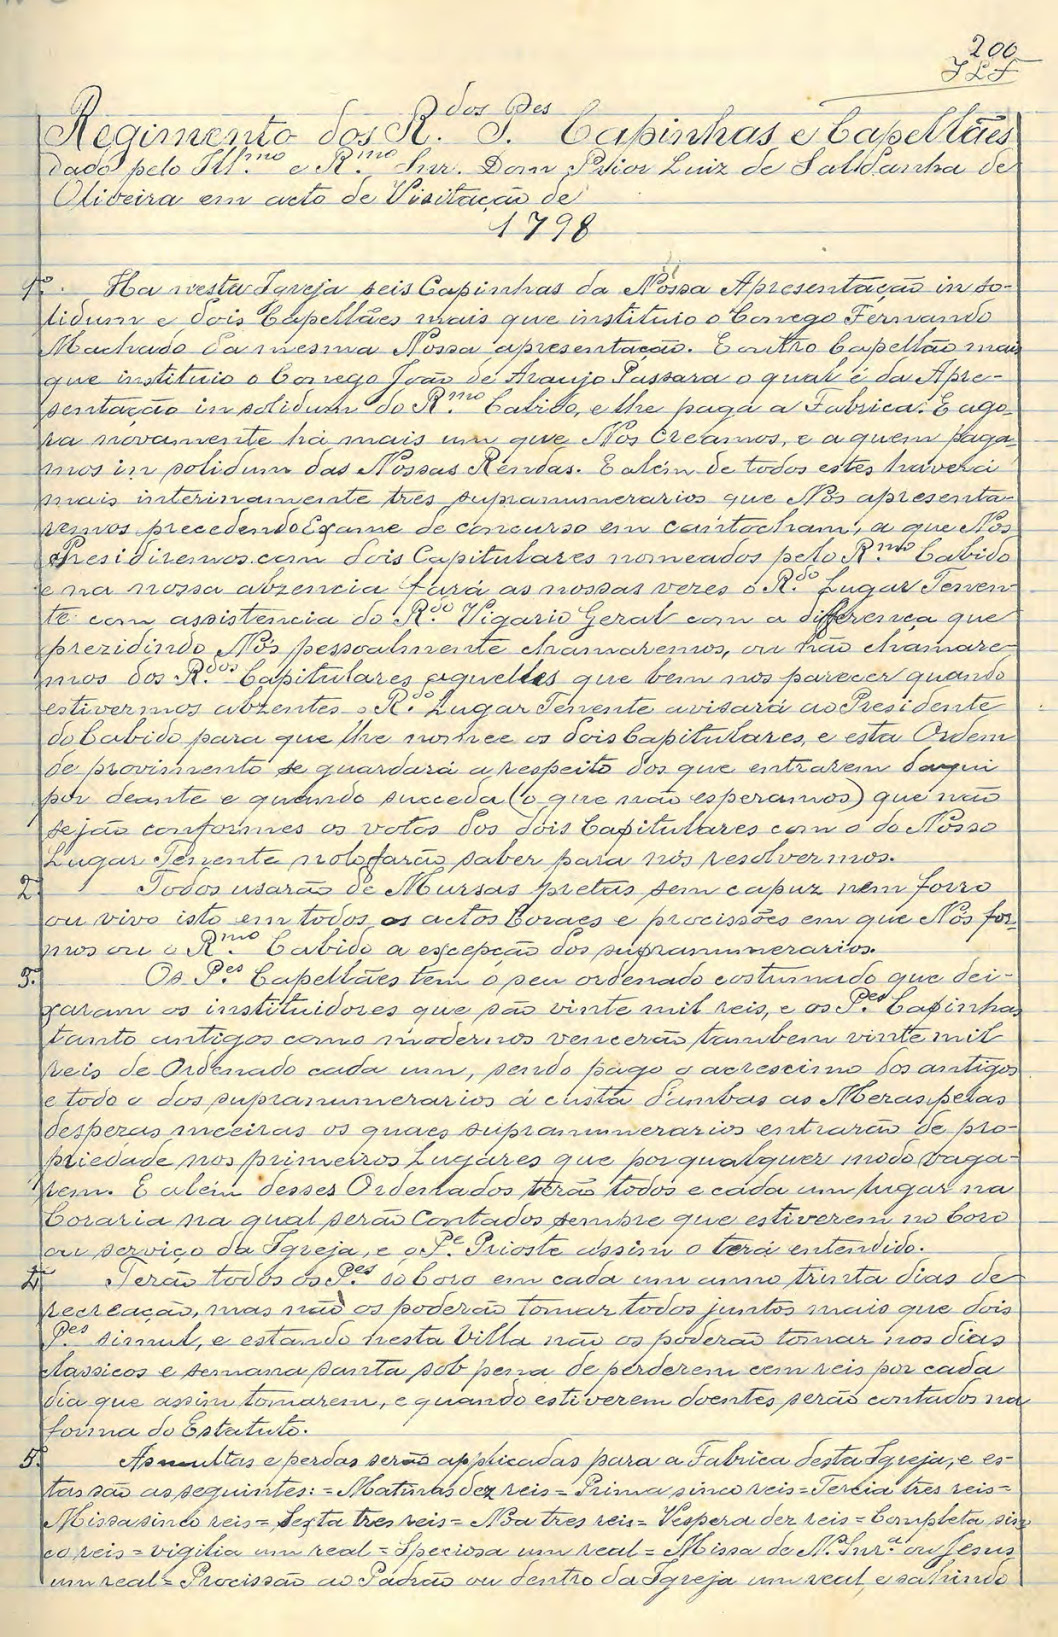 200
JLF
Regimento dos R.dos P.es Capinhas e Capellães
dado pelo Ill.mo e R.mo Snr. Dom Prior Luiz de Saldanha de
Oliveira em acto de Visitação de
1798
1º. Ha nesta Igreja seis Capinhas da Nossa Apresentação in so-
lidum e dois Capellães mais que instituio o Conego Fernando
Machado da mesma Nossa apresentação. E outro Capellão mais
que instituio o Conego João de Araujo Passara o qual é da Apre-
sentação in solidum do R.mo Cabido, e lhe paga a Fabrica. E ago-
ra novamente há mais um que Nós creamos, e a quem paga-
mos in solidum das Nossas Rendas. E além de todos estes haverá
mais interinamente tres supranumerarios que Nós apresenta-
remos precedendo Exame de concurso em cantocham, a que Nós
Presidiremos com dois Capitulares nomeados pelo R.mo Cabido
e na nossa abzencia fará as nossas vezes o R.do Lugar Tenen-
te com assistencia do R.do Vigario Geral com a differença que
prezidindo Nós pessoalmente chamaremos, ou não chamare-
mos dos R.dos Capitulares aquelles que bem nos parecer quando
estivermos abzentes o R.do Lugar Tenente avisará ao Presidente
do Cabido para que lhe nomee os dois Capitulares, e esta Ordem
de provimento se guardará a respeito dos que entrarem daqui
por deante e quando succeda (o que não esperamos) que não
sejão conformes os votos dos dois Capitulares com o do Nosso
Lugar Tenente nolo farão saber para nós resolvermos.
2. Todos usarão de Mursas pretas sem capuz nem forro
ou vivo isto em todos os actos Coraes e procissões em que Nós for-
mos ou o R.mo Cabido, a excepção dos supranumerarios.
3. Os P.es Capellães tem o seu ordenado costumado que dei-
xaram os instituidores que são vinte mil reis, e os P.es Capinhas
tanto antigos como modernos vencerão tambem vinte mil
reis de Ordenado cada um, sendo pago o acrescimo dos antigos
e todo o dos supranumerarios á custa d'ambas as Mezas pelas
despezas meeiras os quaes supranumerarios entrarão de pro-
priedade nos primeiros Lugares que por qualquer modo vaga-
rem. E além desses Ordenados terão todos e cada um lugar na
Coraria na qual serão Contados sempre que estiverem no Coro
ou serviço da Igreja, e o P.e Prioste assim o terá entendido.
4. Terão todos os P.es do Coro em cada um anno trinta dias de
recreação, mas não os poderão tomar todos juntos mais que dois
P.es simul, e estando nesta Villa não os poderão tomar nos dias
classicos e semana santa sob pena de perderem cem reis por cada
dia que assim tomarem, e quando estiverem doentes serão contados na
forma do Estatuto.
5. As multas e perdas serão applicadas para a Fabrica desta Igreja, e es-
tas são as seguintes: = Matinas dez reis = Prima sinco reis = Tercia tres reis =
Missa sinco reis = Sexta tres reis = Noa tres reis = Vespera dez reis = Completa sin-
co reis = vigilia um real = Speciosa um real = Missa de N. Snr.a ou Jesus
um real = Procissão ao Padrão ou dentro da Igreja um real, e sahindo